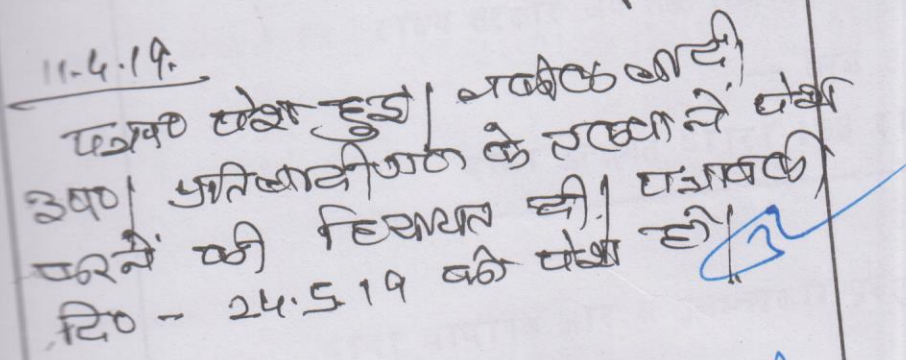 11.4.19.
पत्राव० पेश हुई। वकील वादी
उप०। प्रतिवादीगण के तलवाने पेश
करने की हिदायत दी। पत्रावली
दि० - 24.5.19 को पेश हो।